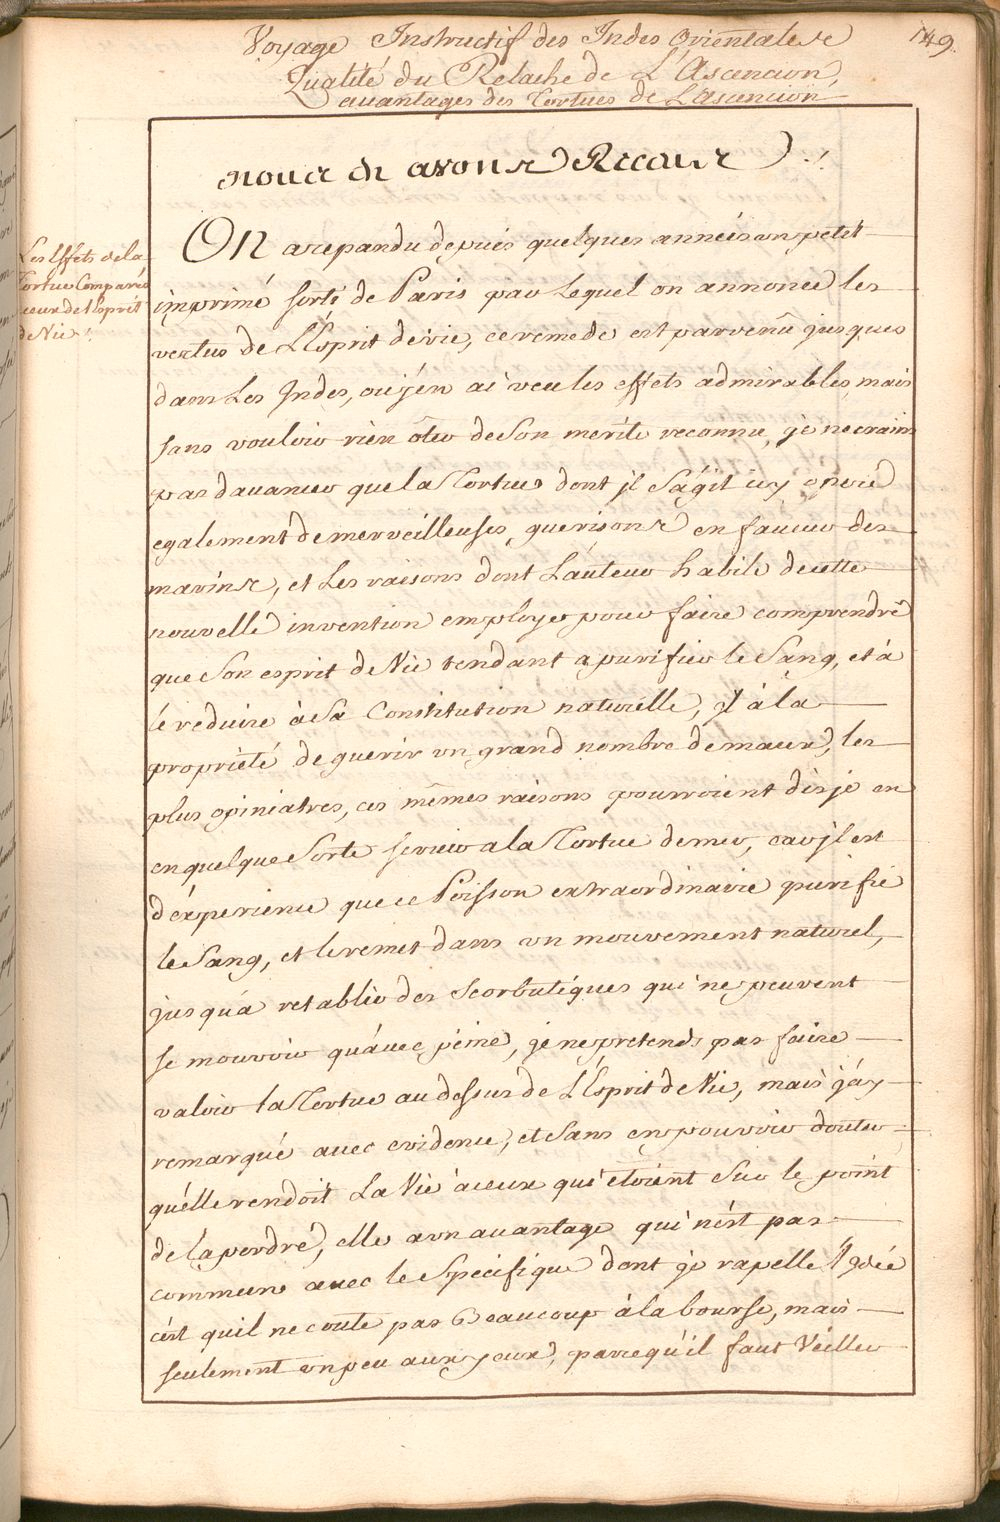 149.
Voyage Instructif des Indes Orientales
Qualité du Relache de L'Ascencion,
auantages des Tortues de L'ascencion
nous en avons Recours !
Les Effets de la
Tortue Comparés
a ceux de l'Esprit
de Vie !
ON a repandu depuis quelques années un petit
imprimé sorti de Paris par Lequel on annonce les
vertus de L'Esprit de vie, ce remede est parvenû jusques
dans Les Indes, où j'en ai veu les effets admirables, mais
sans vouloir rien ôter de Son merite reconnu, je ne crains
pas d'auancer que la Tortue dont jl S'agit icy opere
egalement de merveilleuses guerisons en faueur des
marins, et Les raisons dont L'auteur habile de cette
nouvelle invention employe pour faire comprendre
que Son esprit de Vie tendant a purifier le Sang, et à
le reduire à Sa Constitution naturelle, y à la
proprieté de guerir un grand nombre de maux, les
plus opiniatres, ces mêmes raisons pourroient dis je en
en quelque Sorte servir a la Tortue de mer, car jl est
d'experience que ce Poisson extraordinaire purifie
le Sang, et le remet dans un mouvement naturel,
jusqu'a retablir des Scorbutiques qui ne peuvent
se mouvoir qu'auec peine, je ne pretends pas faire
valoir la Tortue au dessus de L'Esprit de Vie, mais j'ay
remarqué avec evidence, et Sans en pouvoir douter
qu'elle rendoit La Vie à ceux qui etoient Sur le point
de la perdre, elle a un auantage qui n'est pas
commun avec le Specifique dont je rapelle l'idée
c'est quil ne coute pas Beaucoup à la bourse, mais
seulement un peu aux yeux, parcequ'il faut Veiller